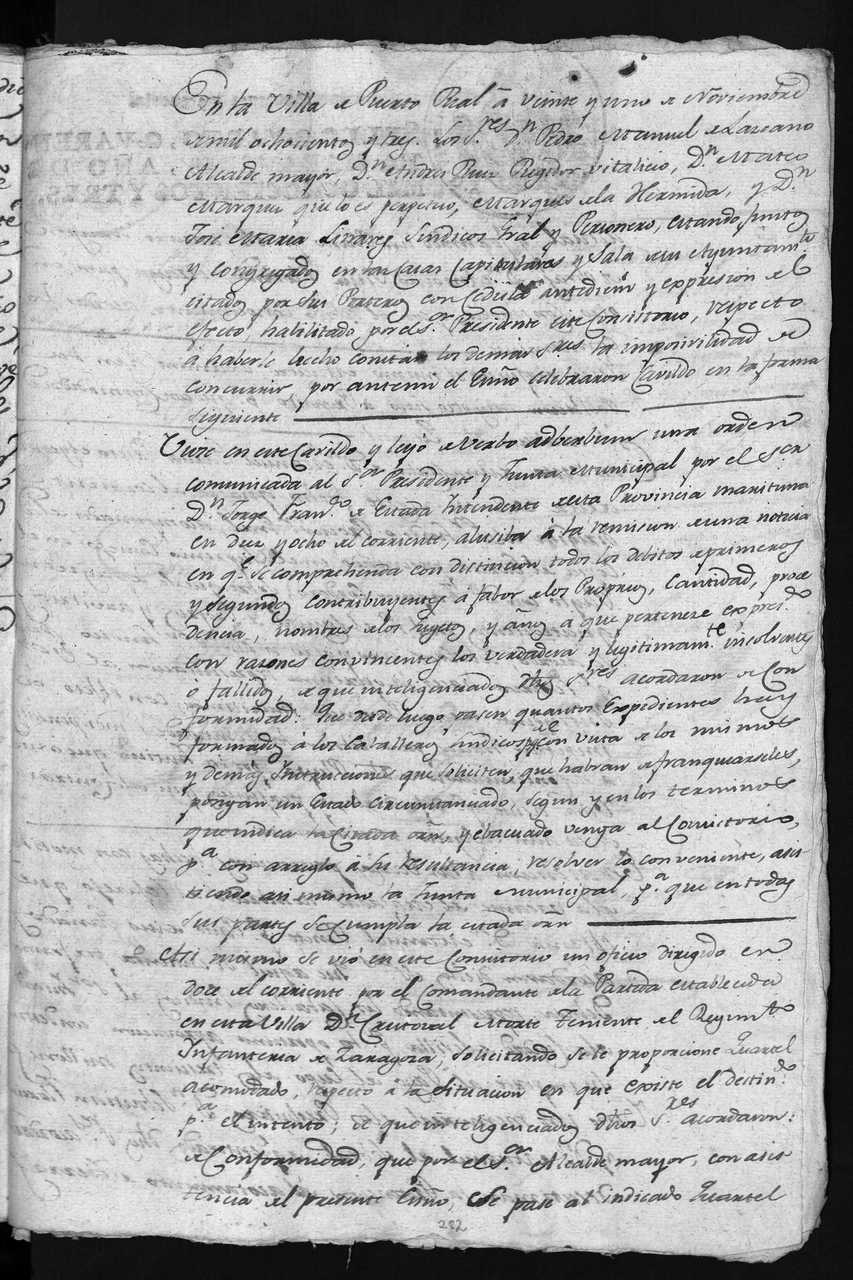 En la Villa de Puerto Real à veinte y uno de Noviembre
de mil ochocientos y tres. Los S.res D.n Pedro Manuel de Lazcano
Alcalde mayor, D.n Andres Ruiz Regidor vitalicio, D.n Mateo
Marquez que lo es perpetuo, Marques de la Hermida, y D.n
José Maria Linares Sindicos Gral y Personero, estando juntos
y congregados en las Casas Capitulares y Sala de su Ayuntam.to
citados por sus Porteros con Cedula antediem y expresion del
efecto, habilitado por el S.or Presidente este Consistorio, respecto
à haberle hecho constar los demas S.res la imposivilidad de
concurrir por antemi el Essño celebraron Cavildo en la forma
siguiente
Viose en este Cavildo y leyó de verbo adberbum una orden
comunicada al S.or Presidente y Junta Municipal por el Señ
D.n Jorge Fran.co de Estada Intendente de esta Provincia maritima
en diez y ocho del corriente, alusiba à la remision de una noticia
en q.e se comprehenda con distincion todos los debitos de primeros
y segundos contribuyentes à fabor de los Propios, Cantidad, proce
dencia, nombres de los sugetos, y años a que pertenece expres.do
con razones convincentes los verdadera y legitimam.te insolvares
o fallidos, de que inteligenciados dhos S.res acordaron de Con
formidad: Que desde luego pasen quantos Expedientes haya
formados à los Caballeros Sindicos p.a q.e con vista de los mismos
y demas Instrucciones que soliciten, que habran de franquearseles,
pongan un Estado circunstanciado, segun y en los terminos
que indica la Citada orn, y ebacuado venga al Consistorio,
p.a con arreglo à su resultancia, resolver lo conveniente, asis
tiendo asimismo la Junta Municipal, p.a que en todas
sus partes se cumpla la citada orn
Asi mismo se vió en este Consistorio un oficio dirigido en
doce del corriente por el Comandante de la Partida establecida
en esta Villa D.n Cristoval Morte Teniente del Regim.to
Infanteria de Zaragoza, solicitando se le proporcione Quartel
acomodado, respecto à la situacion en que existe el destin.do
p.a el intento; de que inteligenciados dhos S.res acordaron:
de Conformidad, que por el S.or Alcalde mayor, con asis
tencia del presente Essño, se pase al indicado Quartel
282